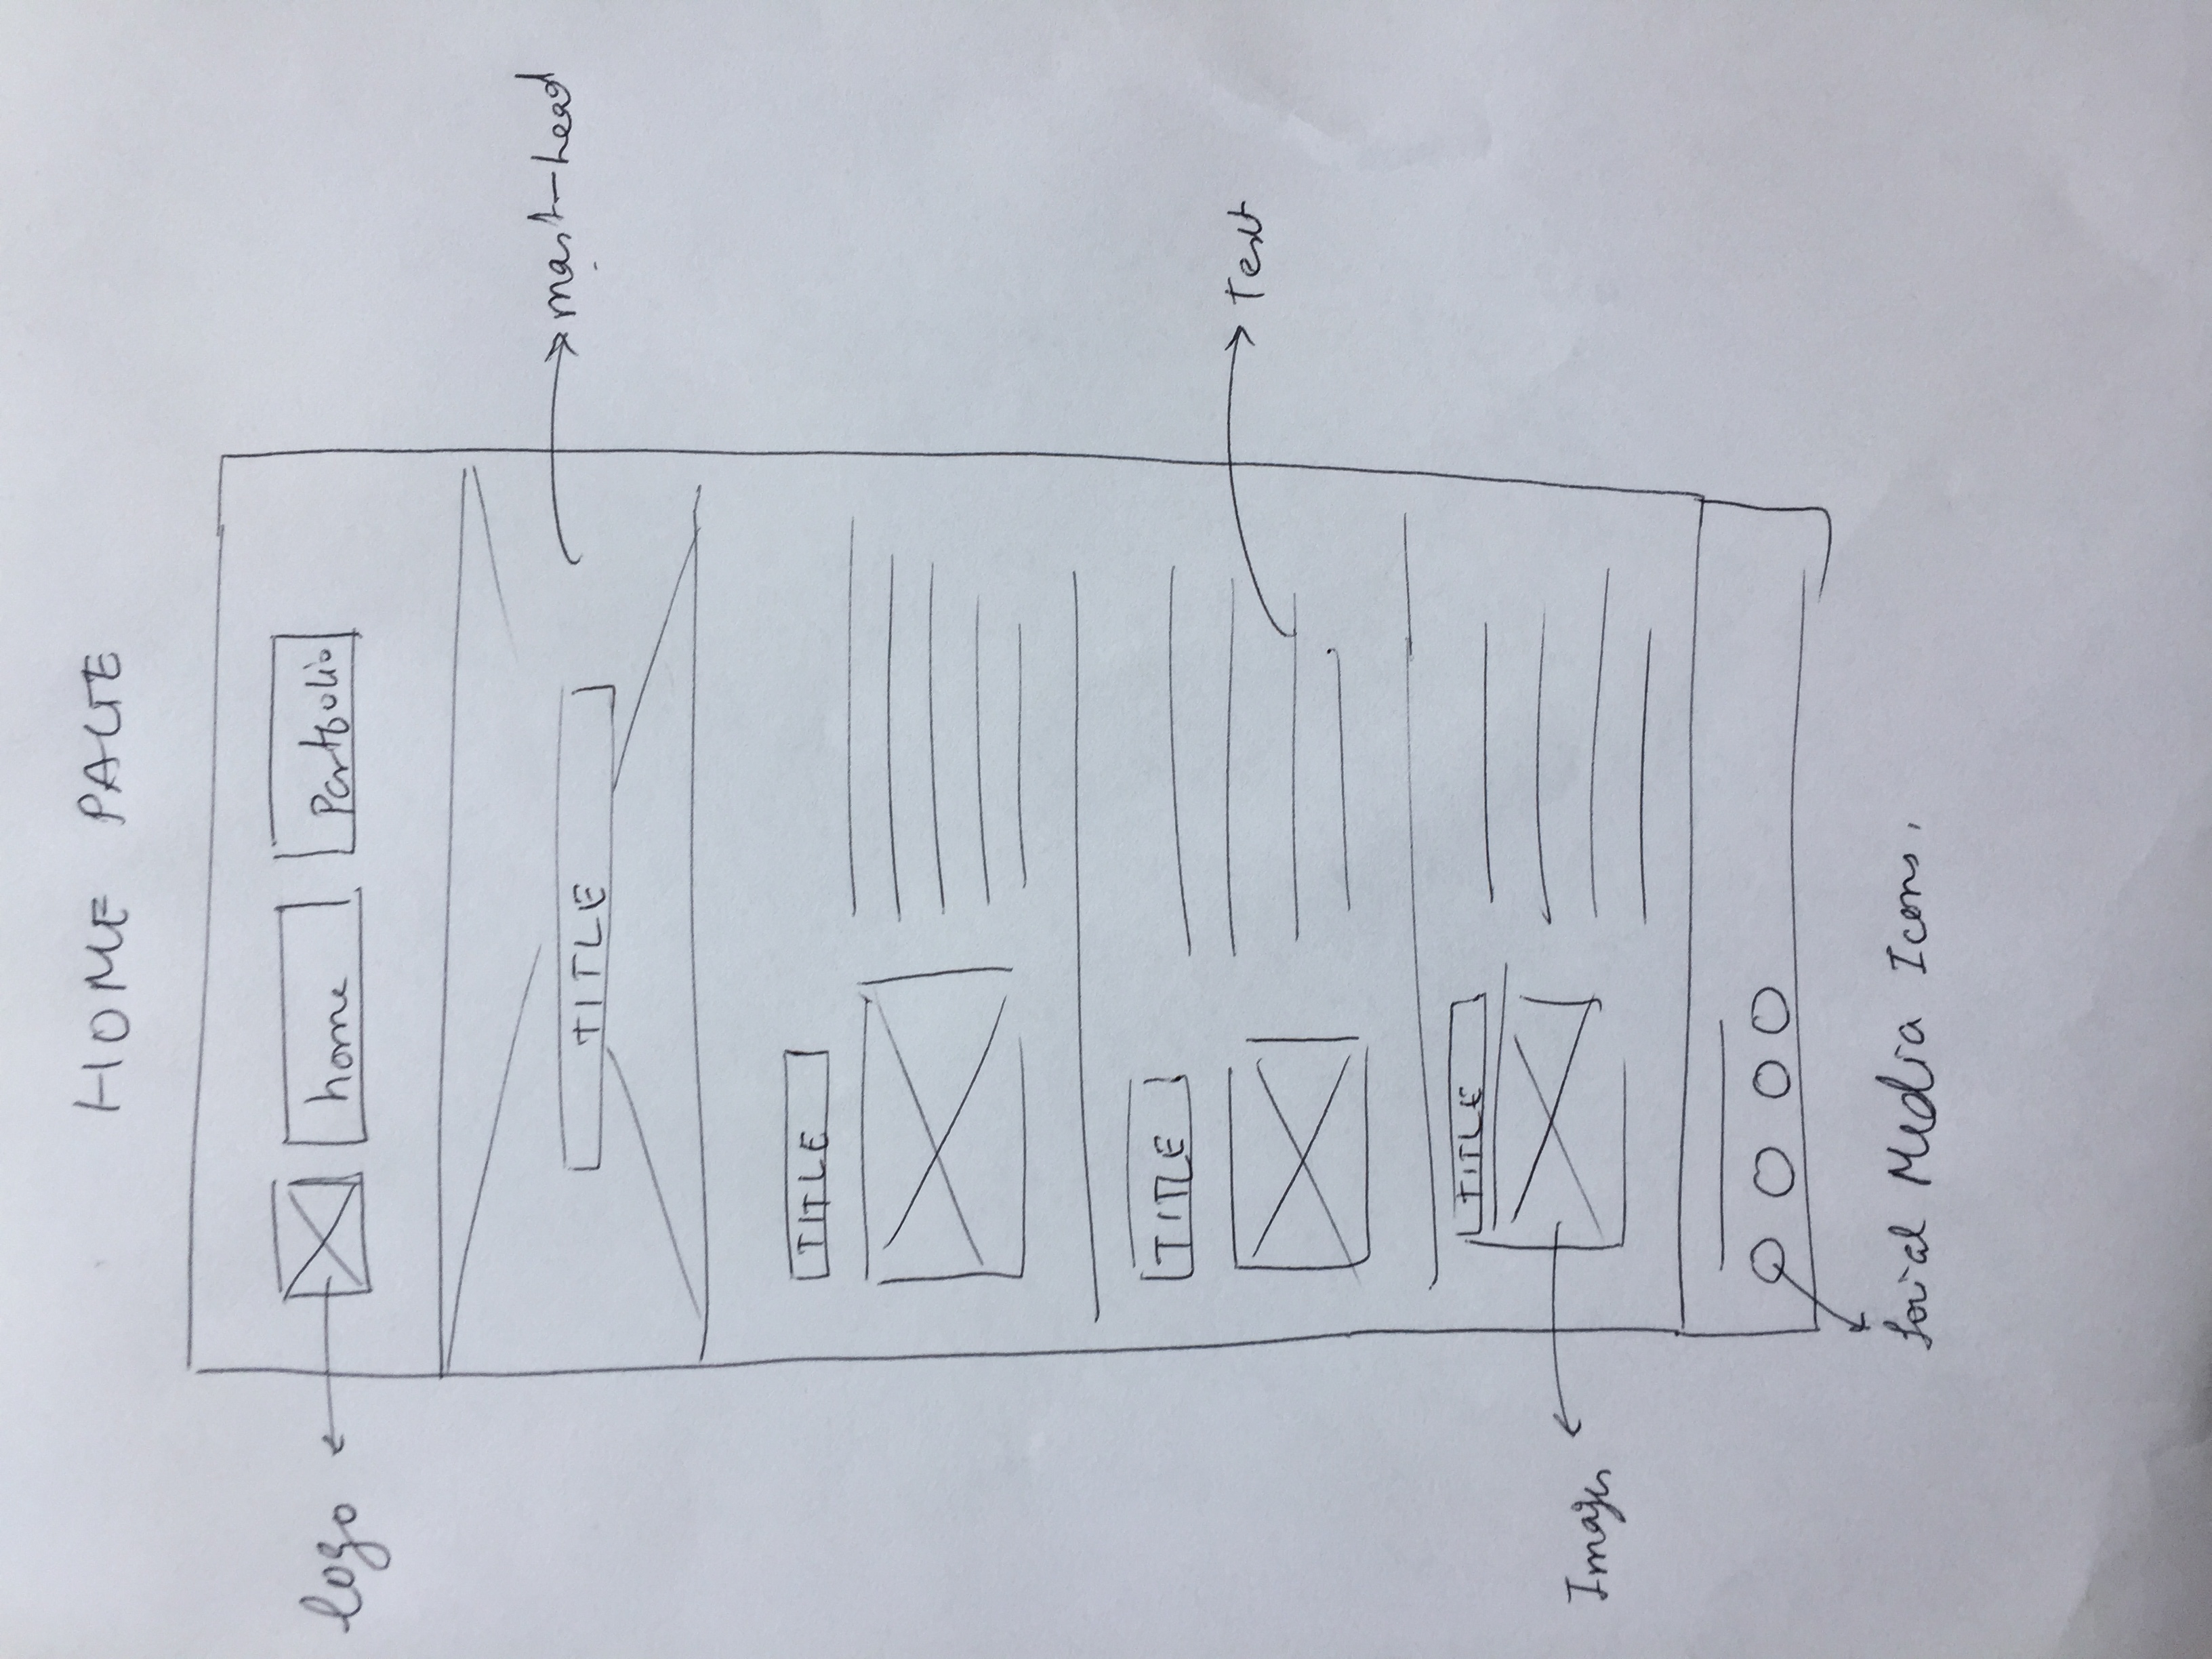 HOME PAGE
logo
home
Portfolio
TITLE
mast-head
TITLE
TITLE
Text
TITLE
Images
Social Media Icons.